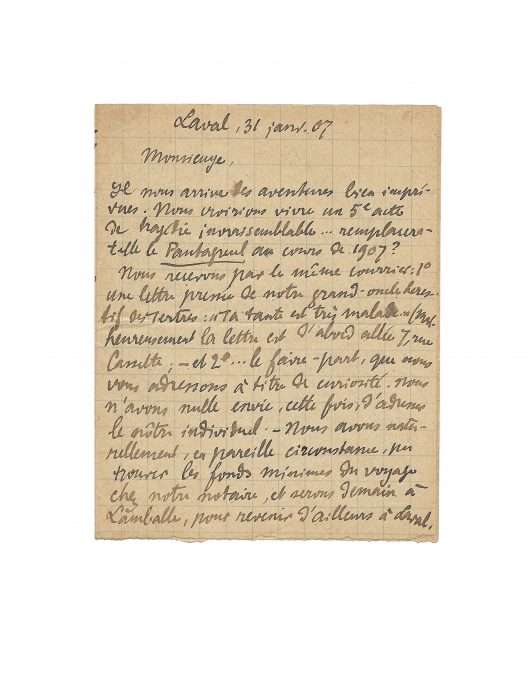 Laval, 31 janv. 07
Monsieuye,
Il nous arrive des aventures bien impré-
vues. Nous croirions vivre un 5e acte
de tragédie invraisemblable... remplacera-
t-elle le Pantagruel au cours de 1907?
Nous recevons par le même courrier: 1o
une lettre de notre grand-oncle
des Tertres: "Ta tante est très malade" (Mal-
heureusement la lettre est d'abord allée 7, rue
Cassette; - et 2o... le faire-part, que nous
vous adressons à titre de curiosité. Nous
n'avons nulle envie, cette fois, d'adresser
le nôtre individuel. - Nous avons natu-
rellement, en pareille circonstance, pu
trouver les fonds minimes du voyage
chez notre notaire, et serons demain à
Lamballe, pour revenir d'ailleurs à Laval,